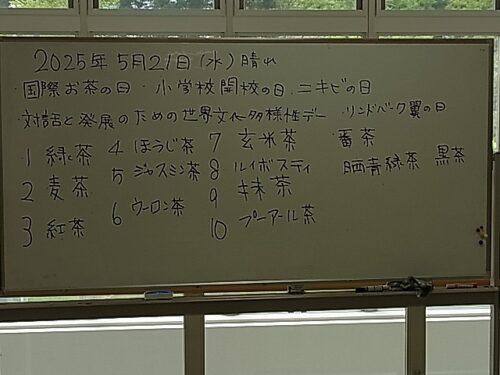 2025年5月21日(水)晴れ
・国際お茶の日・小学校開校の日.ニキビの日
・対話と発展のための世界文化多様性デー・リンドバーグ翼の日
1 緑茶 4 ほうじ茶 7 玄米茶 番茶
5 ジャスミン茶 8 ルイボスティ 晒青緑茶 黒茶
2 麦茶 9 抹茶
6 ウーロン茶
3 紅茶 10 プーアール茶